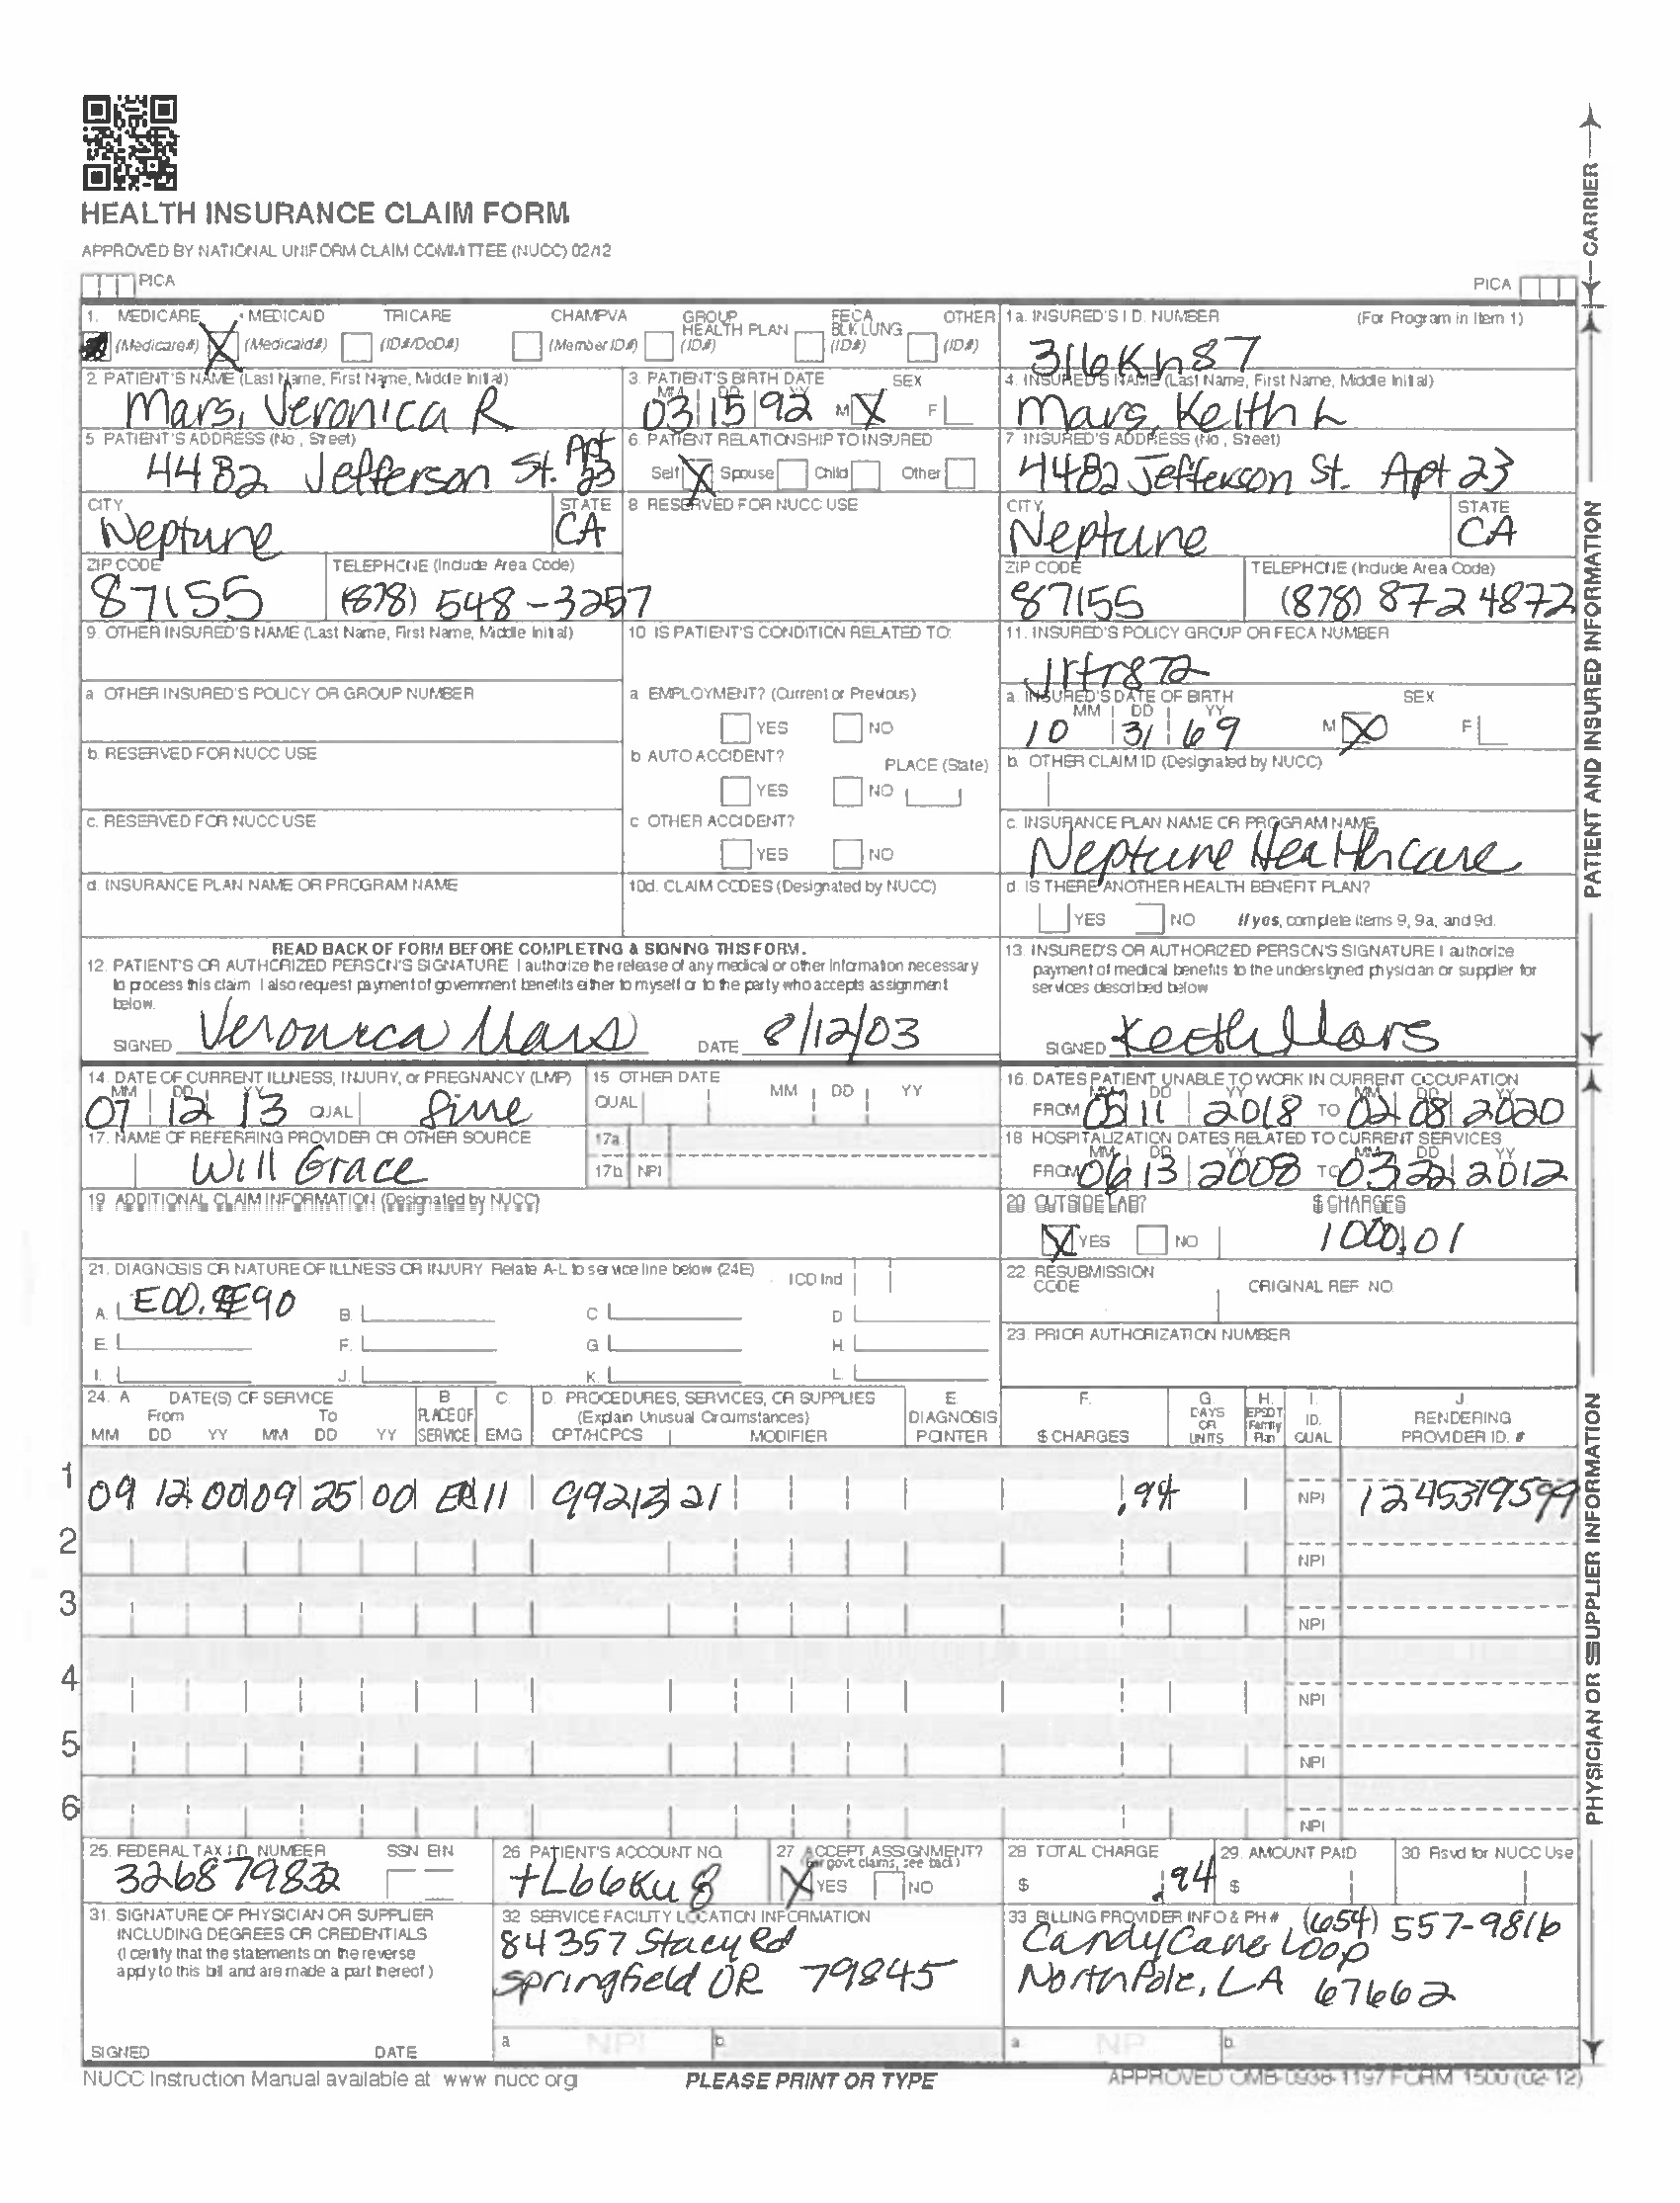 HEALTH INSURANCE CLAIM FORM
APPROVED BY NATIONAL UNIFORM CLAIM COMMITTEE (NUCC) 02/12
PICA
PICA
CARRIER
1. MEDICARE MEDICAID TRICARE CHAMPVA GROUP HEALTH PLAN FECA BLK LUNG OTHER
(Medicare#) X (Medicaid#) (ID#/DoD#) (Member ID#) (ID#) (ID#) (ID#)
1a. INSURED'S I.D. NUMBER (For Program in Item 1)
316Kh87
2. PATIENT'S NAME (Last Name, First Name, Middle Initial)
Mars, Veronica R
3. PATIENT'S BIRTH DATE SEX
MM DD YY
03 15 92 M X F
4. INSURED'S NAME (Last Name, First Name, Middle Initial)
Mars, Keith L
5. PATIENT'S ADDRESS (No., Street)
4482 Jefferson St. Apt 23
6. PATIENT RELATIONSHIP TO INSURED
Self X Spouse Child Other
7. INSURED'S ADDRESS (No., Street)
4482 Jefferson St. Apt 23
CITY
Neptune
STATE
CA
8. RESERVED FOR NUCC USE
CITY
Neptune
STATE
CA
ZIP CODE
87155
TELEPHONE (Include Area Code)
(878) 548-3257
ZIP CODE
87155
TELEPHONE (Include Area Code)
(878) 872 4872
9. OTHER INSURED'S NAME (Last Name, First Name, Middle Initial)
10. IS PATIENT'S CONDITION RELATED TO:
11. INSURED'S POLICY GROUP OR FECA NUMBER
a. OTHER INSURED'S POLICY OR GROUP NUMBER
a. EMPLOYMENT? (Current or Previous)
YES NO
a. INSURED'S DATE OF BIRTH SEX
MM DD YY
10 31 69 M X F
b. RESERVED FOR NUCC USE
b. AUTO ACCIDENT? PLACE (State)
YES NO
b. OTHER CLAIM ID (Designated by NUCC)
c. RESERVED FOR NUCC USE
c. OTHER ACCIDENT?
YES NO
c. INSURANCE PLAN NAME OR PROGRAM NAME
Neptune Healthcare
d. INSURANCE PLAN NAME OR PROGRAM NAME
10d. CLAIM CODES (Designated by NUCC)
d. IS THERE ANOTHER HEALTH BENEFIT PLAN?
YES NO If yes, complete items 9, 9a, and 9d.
READ BACK OF FORM BEFORE COMPLETING & SIGNING THIS FORM.
12. PATIENT'S OR AUTHORIZED PERSON'S SIGNATURE I authorize the release of any medical or other information necessary
to process this claim. I also request payment of government benefits either to myself or to the party who accepts assignment
below.
SIGNED Veronica Mars DATE 8/12/03
13. INSURED'S OR AUTHORIZED PERSON'S SIGNATURE I authorize
payment of medical benefits to the undersigned physician or supplier for
services described below.
SIGNED Keith Mars
PATIENT AND INSURED INFORMATION
14. DATE OF CURRENT ILLNESS, INJURY, or PREGNANCY (LMP)
MM DD YY
07 12 13 QUAL.
15. OTHER DATE
QUAL. MM DD YY
16. DATES PATIENT UNABLE TO WORK IN CURRENT OCCUPATION
MM DD YY MM DD YY
FROM 05 11 2018 TO 02 08 2020
17. NAME OF REFERRING PROVIDER OR OTHER SOURCE
Will Grace
17a.
17b. NPI
18. HOSPITALIZATION DATES RELATED TO CURRENT SERVICES
MM DD YY MM DD YY
FROM 06 13 2008 TO 03 22 2012
19. ADDITIONAL CLAIM INFORMATION (Designated by NUCC)
20. OUTSIDE LAB? $ CHARGES
X YES NO 1000.01
21. DIAGNOSIS OR NATURE OF ILLNESS OR INJURY Relate A-L to service line below (24E) ICD Ind.
A. B. C. D.
E. F. G. H.
I. J. K. L.
22. RESUBMISSION CODE ORIGINAL REF. NO.
23. PRIOR AUTHORIZATION NUMBER
24. A. DATE(S) OF SERVICE B. C. D. PROCEDURES, SERVICES, OR SUPPLIES E. F. G. H. I. J.
From To PLACE OF (Explain Unusual Circumstances) DIAGNOSIS DAYS OR EPSDT Family ID. RENDERING
MM DD YY MM DD YY SERVICE EMG CPT/HCPCS MODIFIER POINTER $ CHARGES UNITS Plan QUAL. PROVIDER ID. #
1 09 12 00 09 25 00 ER 11 99213 21 .94 NPI 1245319599
2 NPI
3 NPI
4 NPI
5 NPI
6 NPI
PHYSICIAN OR SUPPLIER INFORMATION
25. FEDERAL TAX I.D. NUMBER SSN EIN
326879832
26. PATIENT'S ACCOUNT NO.
+L66Ku8
27. ACCEPT ASSIGNMENT?
(For govt. claims, see back)
X YES NO
28. TOTAL CHARGE
$ .94
29. AMOUNT PAID
$
30. Rsvd for NUCC Use
31. SIGNATURE OF PHYSICIAN OR SUPPLIER
INCLUDING DEGREES OR CREDENTIALS
(I certify that the statements on the reverse
apply to this bill and are made a part thereof.)
SIGNED DATE
32. SERVICE FACILITY LOCATION INFORMATION
84357 Stacy Rd
Springfield OR 79845
a. NPI b.
33. BILLING PROVIDER INFO & PH # (654) 557-9816
Candy Cane Loop
North Pole, LA 67662
a. NPI b.
NUCC Instruction Manual available at: www.nucc.org
PLEASE PRINT OR TYPE
APPROVED OMB-0938-1197 FORM 1500 (02-12)